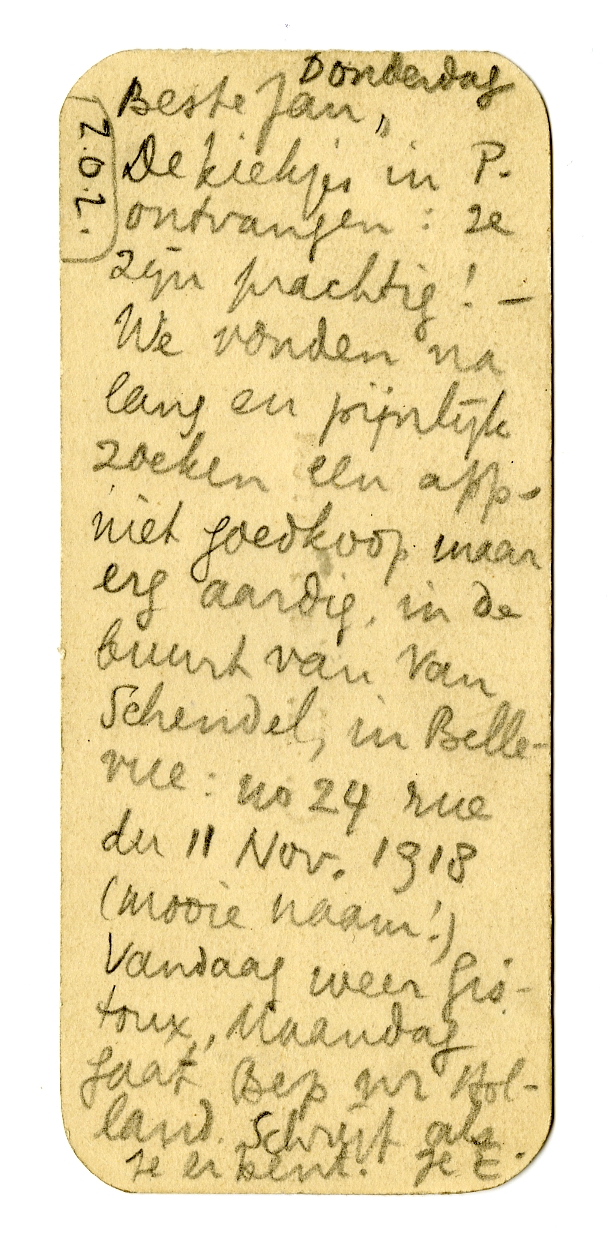 Donderdag
Beste Jan,
De kiekjes in P.
ontvangen: ze
zijn prachtig! —
We vonden na
lang en pijnlijk
zoeken een app.
niet goedkoop maar
erg aardig, in de
buurt van Van
Schendel, in Belle-
vue: no 24 rue
du 11 Nov. 1918
(mooie naam!)
Vandaag weer Gis-
toux, Maandag
gaat Bep nr Hol-
land. Schrijf als
je er bent. Je E.
Z.O.Z.